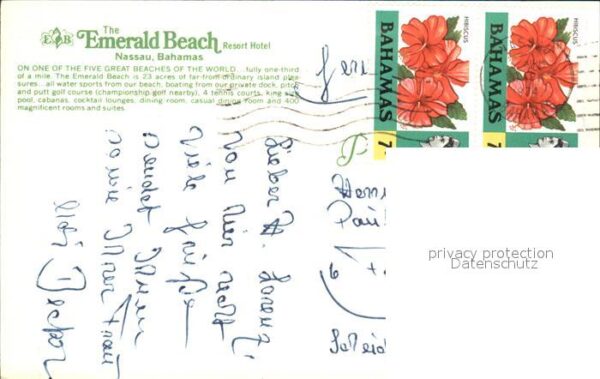 The
E B Emerald Beach Resort Hotel
Nassau, Bahamas
ON ONE OF THE FIVE GREAT BEACHES OF THE WORLD... fully one-third
of a mile. The Emerald Beach is 23 acres of far-from-ordinary island plea-
sures... all water sports from our beach, boating from our private dock, pitch
and putt golf course (championship golf nearby), 4 tennis courts, king size
pool, cabanas, cocktail lounges, dining room, casual dining room and 400
magnificent rooms and suites.
HIBISCUS
BAHAMAS
7
HIBISCUS
BAHAMAS
7
Lieber H. Lorenz!
Von hier recht
viele Grüße
sendet Ihnen
sowie Ihrer Frau
Herr
Paul
privacy protection
Datenschutz